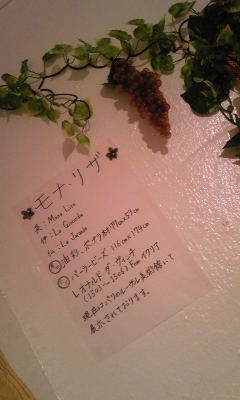 モナ・リザ
英:Mona Lisa
伊:La Gioconda
仏:La Joconde
油彩・ポプラ材 77cm×53cm
パーラービーズ 116cm×174cm
レオナルド ダ ヴィーチ
(1503〜1506) From イタリア
現在はパリのルーブル美術館にて
展示されております。